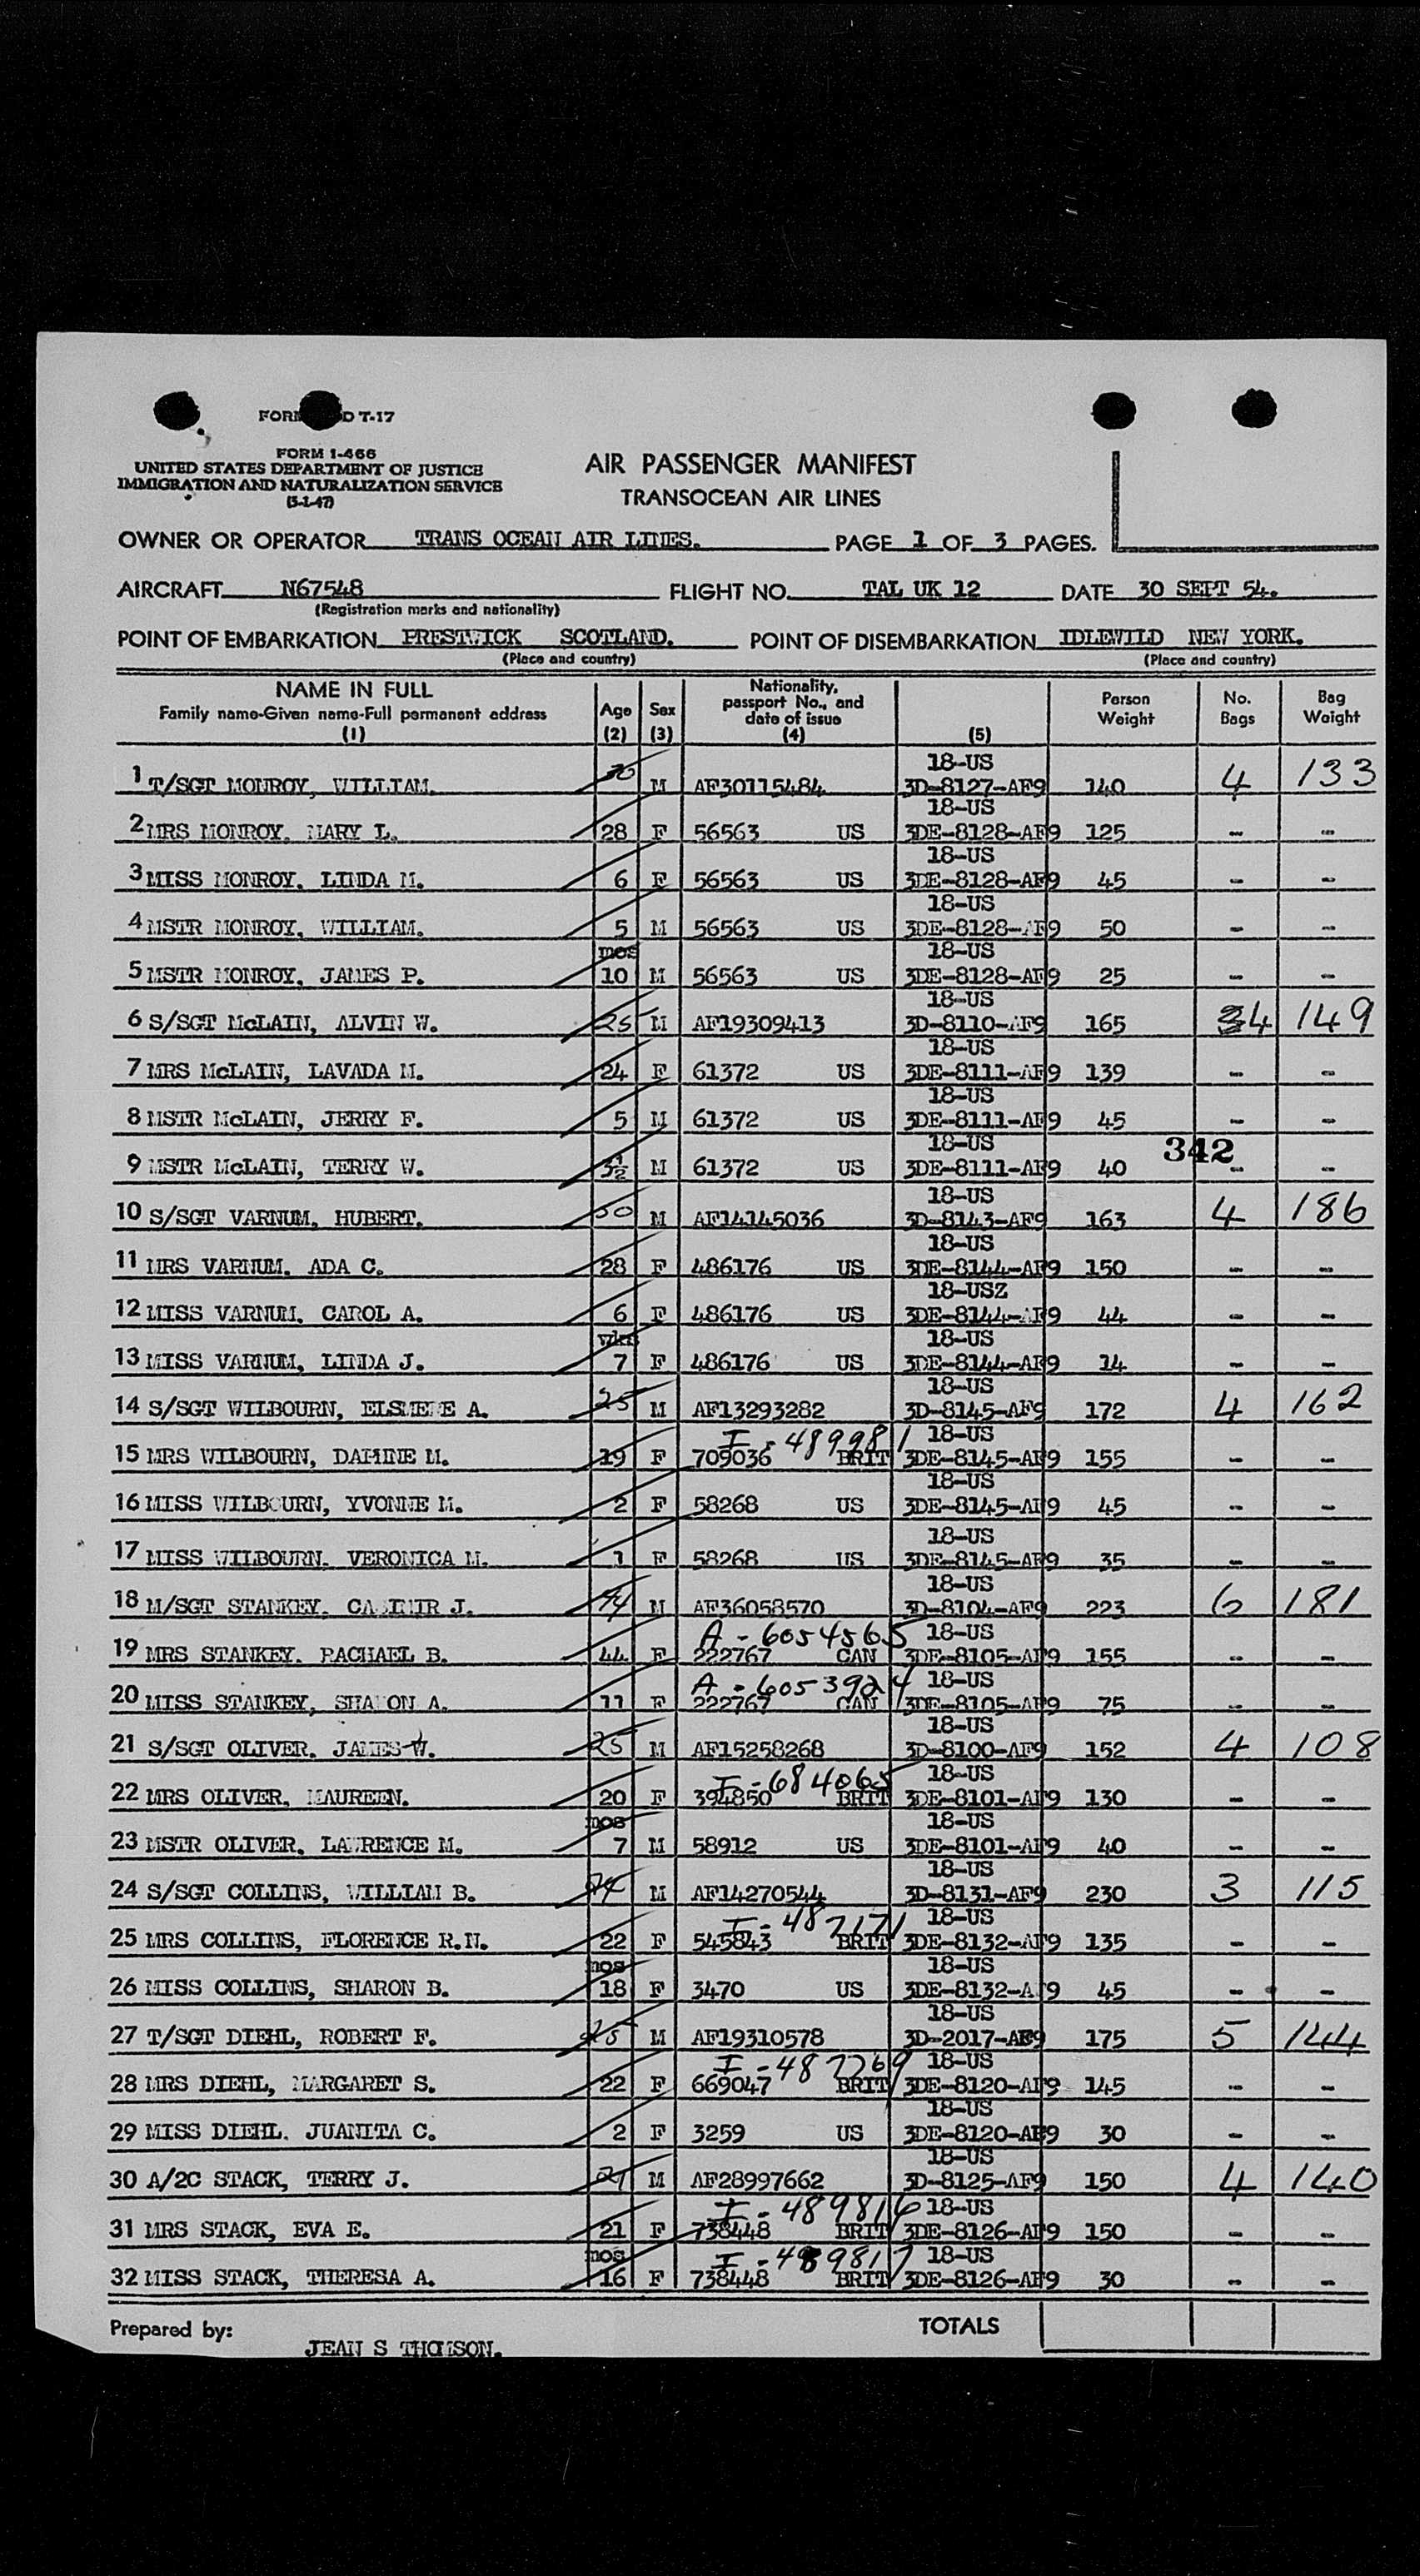 FORM D T-17
FORM I-466
UNITED STATES DEPARTMENT OF JUSTICE
IMMIGRATION AND NATURALIZATION SERVICE
(5-1-47)
AIR PASSENGER MANIFEST
TRANSOCEAN AIR LINES
OWNER OR OPERATOR TRANS OCEAN AIR LINES. PAGE 1 OF 3 PAGES.
AIRCRAFT N67548 FLIGHT NO. TAL UK 12 DATE 30 SEPT 54.
(Registration marks and nationality)
POINT OF EMBARKATION PRESTWICK SCOTLAND. POINT OF DISEMBARKATION IDLEWILD NEW YORK.
(Place and country) (Place and country)
NAME IN FULL Family name-Given name-Full permanent address (1) Age (2) Sex (3) Nationality, passport No., and date of issue (4) (5) Person Weight No. Bags Bag Weight
18-US
1 T/SGT MONROY, WILLIAM. 30 M AF30115484 3D-8127-AF9 140 4 133
18-US
2 MRS MONROY. MARY L. 28 F 56563 US 3DE-8128-AF9 125 - -
18-US
3 MISS MONROY. LINDA M. 6 F 56563 US 3DE-8128-AF9 45 - -
18-US
4 MSTR MONROY, WILLIAM. 5 M 56563 US 3DE-8128-AF9 50 - -
mos 18-US
5 MSTR MONROY, JAMES P. 10 M 56563 US 3DE-8128-AF9 25 - -
18-US
6 S/SGT McLAIN, ALVIN W. 25 M AF19309413 3D-8110-AF9 165 34 149
18-US
7 MRS McLAIN, LAVADA M. 24 F 61372 US 3DE-8111-AF9 139 - -
18-US
8 MSTR McLAIN, JERRY F. 5 M 61372 US 3DE-8111-AF9 45 - -
18-US 342
9 MSTR McLAIN, TERRY W. 3½ M 61372 US 3DE-8111-AF9 40 - -
18-US
10 S/SGT VARNUM, HUBERT. 30 M AF14145036 3D-8143-AF9 163 4 186
18-US
11 MRS VARNUM. ADA C. 28 F 486176 US 3DE-8144-AF9 150 - -
18-USZ
12 MISS VARNUM. CAROL A. 6 F 486176 US 3DE-8144-AF9 44 - -
wks 18-US
13 MISS VARNUM, LINDA J. 7 F 486176 US 3DE-8144-AF9 14 - -
18-US
14 S/SGT WILBOURN, ELSMERE A. 25 M AF13293282 3D-8145-AF9 172 4 162
I-489981 18-US
15 MRS WILBOURN, DAHINE M. 19 F 709036 BRIT 3DE-8145-AF9 155 - -
18-US
16 MISS WILBOURN, YVONNE M. 2 F 58268 US 3DE-8145-AF9 45 - -
18-US
17 MISS WILBOURN. VERONICA M. 1 F 58268 US 3DE-8145-AF9 35 - -
18-US
18 M/SGT STANKEY. CASIMIR J. 44 M AF36058570 3D-8104-AF9 223 6 181
A-6054565 18-US
19 MRS STANKEY. RACHAEL B. 44 F 222767 CAN 3DE-8105-AF9 155 - -
A-6053924 18-US
20 MISS STANKEY, SHARON A. 11 F 222767 CAN 3DE-8105-AF9 75 - -
18-US
21 S/SGT OLIVER. JAMES W. 25 M AF15258268 3D-8100-AF9 152 4 108
I-684065 18-US
22 MRS OLIVER, MAUREEN. 20 F 394850 BRIT 3DE-8101-AF9 130 - -
mos 18-US
23 MSTR OLIVER. LAWRENCE M. 7 M 58912 US 3DE-8101-AF9 40 - -
18-US
24 S/SGT COLLINS, WILLIAM B. 24 M AF14270544 3D-8131-AF9 230 3 115
I-487171 18-US
25 MRS COLLINS, FLORENCE R.N. 22 F 545843 BRIT 3DE-8132-AF9 135 - -
mos 18-US
26 MISS COLLINS, SHARON B. 18 F 3470 US 3DE-8132-AF9 45 - -
18-US
27 T/SGT DIEHL, ROBERT F. 25 M AF19310578 3D-2017-AF9 175 5 144
I-487769 18-US
28 MRS DIEHL, MARGARET S. 22 F 669047 BRIT 3DE-8120-AF9 145 - -
18-US
29 MISS DIEHL. JUANITA C. 2 F 3259 US 3DE-8120-AF9 30 - -
18-US
30 A/2C STACK, TERRY J. 21 M AF28997662 3D-8125-AF9 150 4 140
I-489816 18-US
31 MRS STACK, EVA E. 21 F 738448 BRIT 3DE-8126-AF9 150 - -
mos I-489817 18-US
32 MISS STACK, THERESA A. 16 F 738448 BRIT 3DE-8126-AF9 30 - -
Prepared by: TOTALS
JEAN S THOMSON.